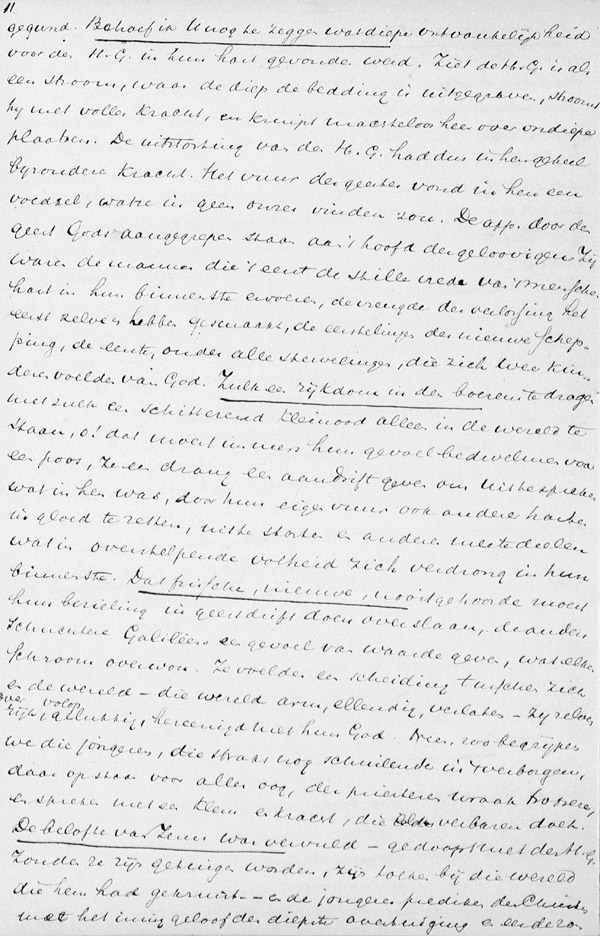 11
gegund. Behoef ik U nog te zeggen wat diepe ontvankelijkheid
voor den H.G. in hun hart gevonden werd. Ziet de H.G. is als
een stroom, waar de diep de bedding is uitgegraven, stroomt
hy met volle kracht, en kruipt machteloos heen over ondiepe
plaatsen. De uitstorting van den H.G. had dus in hen geheel
byzondere kracht. Het vuur des geestes vond in hen een
voedsel, watze in geen onzer vinden zou. De app. door den
geest Gods aangegrepen staan aan 't hoofd der geloovigen. Zij
waren de mannen die 't eerst de stille vrede van 't menschen
hart in hun binnenste ervoeren, de vreugde der verlossing het
eerst zelven hebben gesmaakt, de eerstelingen der nieuwe schep-
ping, de eerste, onder alle stervelingen, die zich twee kin-
deren voelden van God. Zulk een rijkdom in den boezem te dragen
met zulk een schitterend kleinood alleen in de wereld te
staan, o! dat moest immers hun gevoel bedwelmen voor
een poos, ze een drang een aandrift geven om uit te spreken
wat in hen was, door hun eigen vuur ook andere harten
in gloed te zetten, uit te storten en anderen mede te deelen
wat in overstelpende volheid zich verdrong in hun
binnenste. Dat frissche, nieuwe, nooit gehoorde moest
hun bezieling in geestdrift doen overslaan, de anders
schuchtere Galileërs een gevoel van waarde geven, wat elken
schroom overwon. Ze voelden een scheiding tusschen zich
en de wereld – die wereld arm, ellendig, verlaten – zy zelven
rijk, volop gelukkig, hereenigd met hun God. Neen, zoo begrijpen
we die jongeren, die straks nog schuilende in 't verborgen,
daar op staan voor aller oog, der priesteren wraak trotseren,
en spreken met een klem en kracht, die verbazen doet.
De belofte van Jezus was vervuld – gedoopt met den H.G.
Zonder ze zijn getuigen worden, zijn tolken bij die wereld
die hem had gekruist – en de jongeren prediken den Christus
met het innig geloof der diepste overtuiging en een dezer